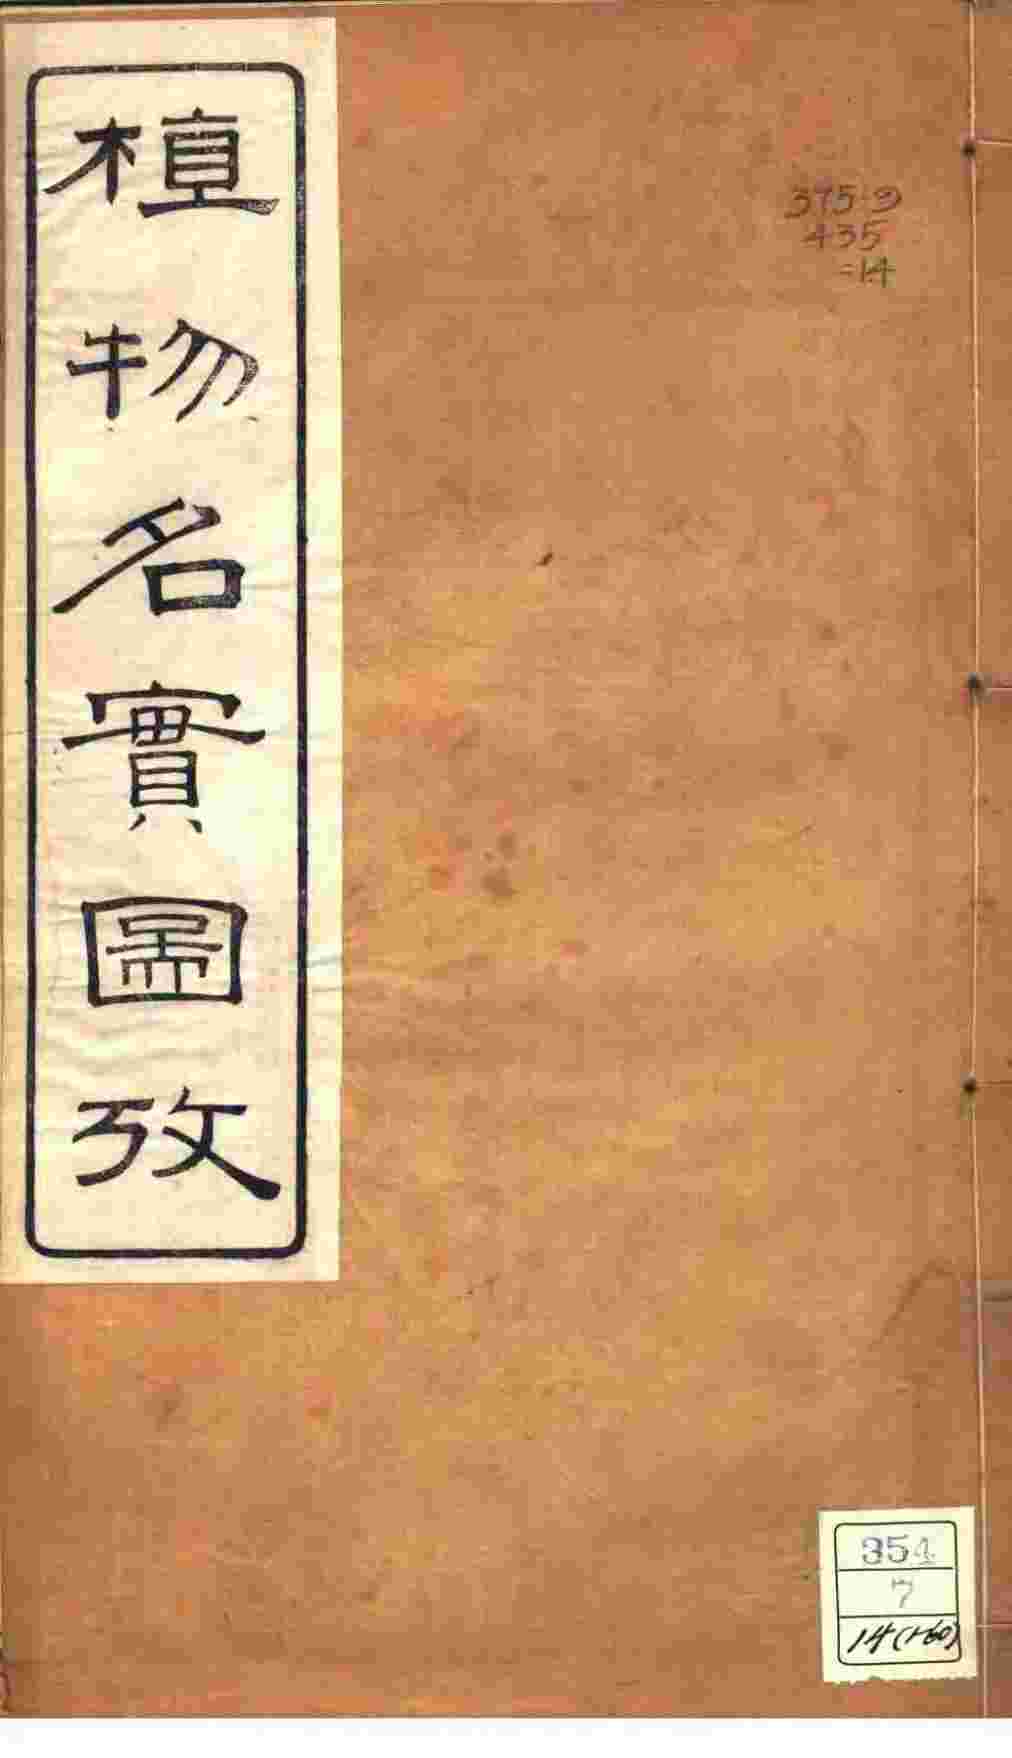 植物名實圖攷
375·3
435
=14
354
7
14(1-60)